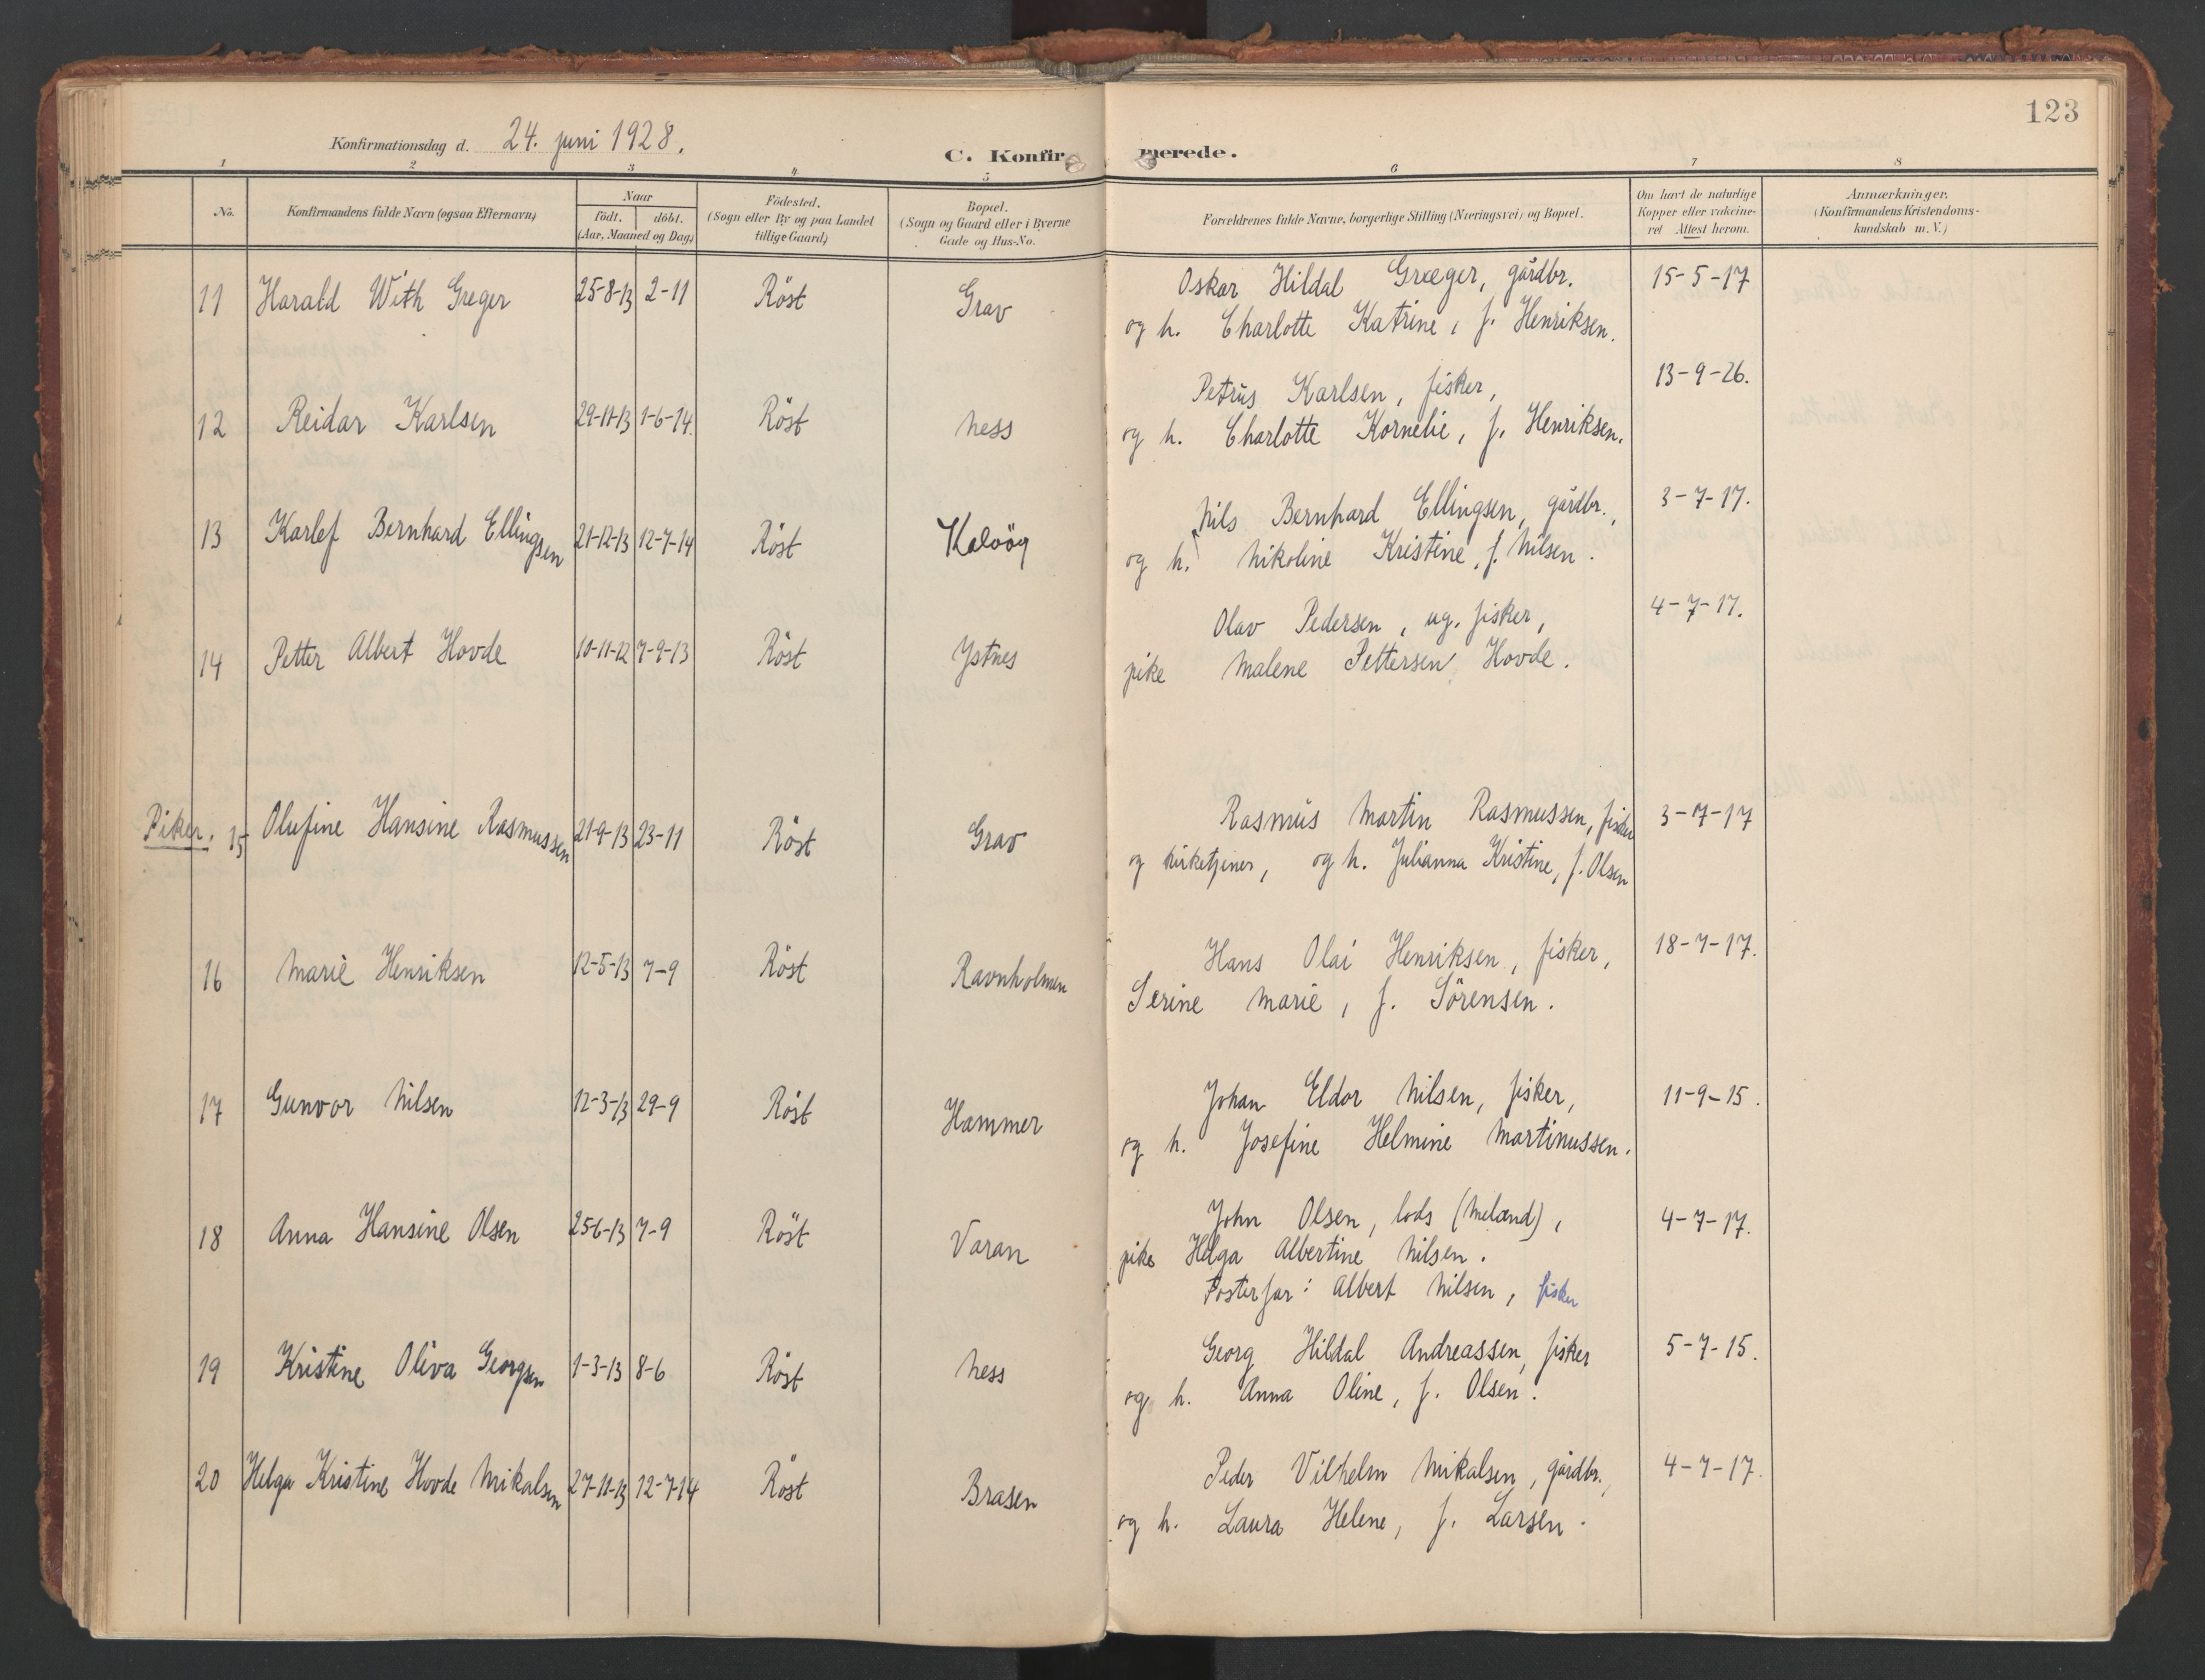 123
Konfirmationsdag d. 24. juni 1928.
C. Konfirmerede.
1 2 3 4 5 6 7 8
No.
Konfirmandens fulde Navn (ogsaa Efternavn)
Naar
født. døbt.
(Aar, Maaned og Dag)
Fødested.
(Sogn eller By og paa Landet
tillige Gaard)
Bopæl.
(Sogn og Gaard eller i Byerne
Gade og Hus-No.
Forældrenes fulde Navne, borgerlige Stilling (Næringsvei) og Bopæl.
Om havt de naturlige
Kopper eller vakcine-
ret Attest herom.
Anmærkninger.
(Konfirmandens Kristendoms-
kundskab m. V.)
11 Harald With Greger 25-8-13 2-11 Röst Grav Oskar Hildal Græger, gårdbr. 15-5-17
og h. Charlotte Katrine, f. Henriksen.
12 Reidar Karlsen 29-11-13 1-6-14. Röst Ness Petrus Karlsen, fisker, 13-9-26.
og h. Charlotte Kornelie, f. Henriksen.
13 Karlef Bernhard Ellingsen 21-12-13 12-7-14 Röst Kaloög Nils Bernhard Ellingsen, gårdbr., 3-7-17.
og h. Nikoline Kristine, f. Nilsen.
14 Petter Albert Hovde 10-11-12 7-9-13 Röst Ystnes Olav Pedersen, ug. fisker, 4-7-17.
pike Malene Pettersen Hovde.
Piker. 15 Olufine Hansine Rasmussen 21-9-13 23-11 Röst Grav Rasmus Martin Rasmussen, fisker 3-7-17
og kirketjener, og h. Julianna Kristine, f. Olsen
16 Marie Henriksen 12-5-13 7-9 Röst Ravnholmen Hans Olai Henriksen, fisker, 18-7-17.
Serine Marie, f. Sörensen.
17 Gunvor Nilsen 12-3-13 29-9 Röst Hammer Johan Eldor Nilsen, fisker, 11-9-15.
og h. Josefine Helmine Martinussen.
18 Anna Hansine Olsen 25-6-13 7-9 Röst Varan John Olsen, lods (Meland), 4-7-17.
pike Helga Albertine Nilsen.
Fosterfar: Albert Nilsen, fisker
19 Kristine Oliva Georgsen 1-3-13 8-6 Röst Ness Georg Hildal Andreassen, fisker 5-7-15.
og h. Anna Oline, f. Olsen.
20 Helga Kristine Hovde Mikalsen 27-11-13 12-7-14 Röst Brasen Peder Vilhelm Mikalsen, gårdbr., 4-7-17.
og h. Laura Helene, f. Larsen.